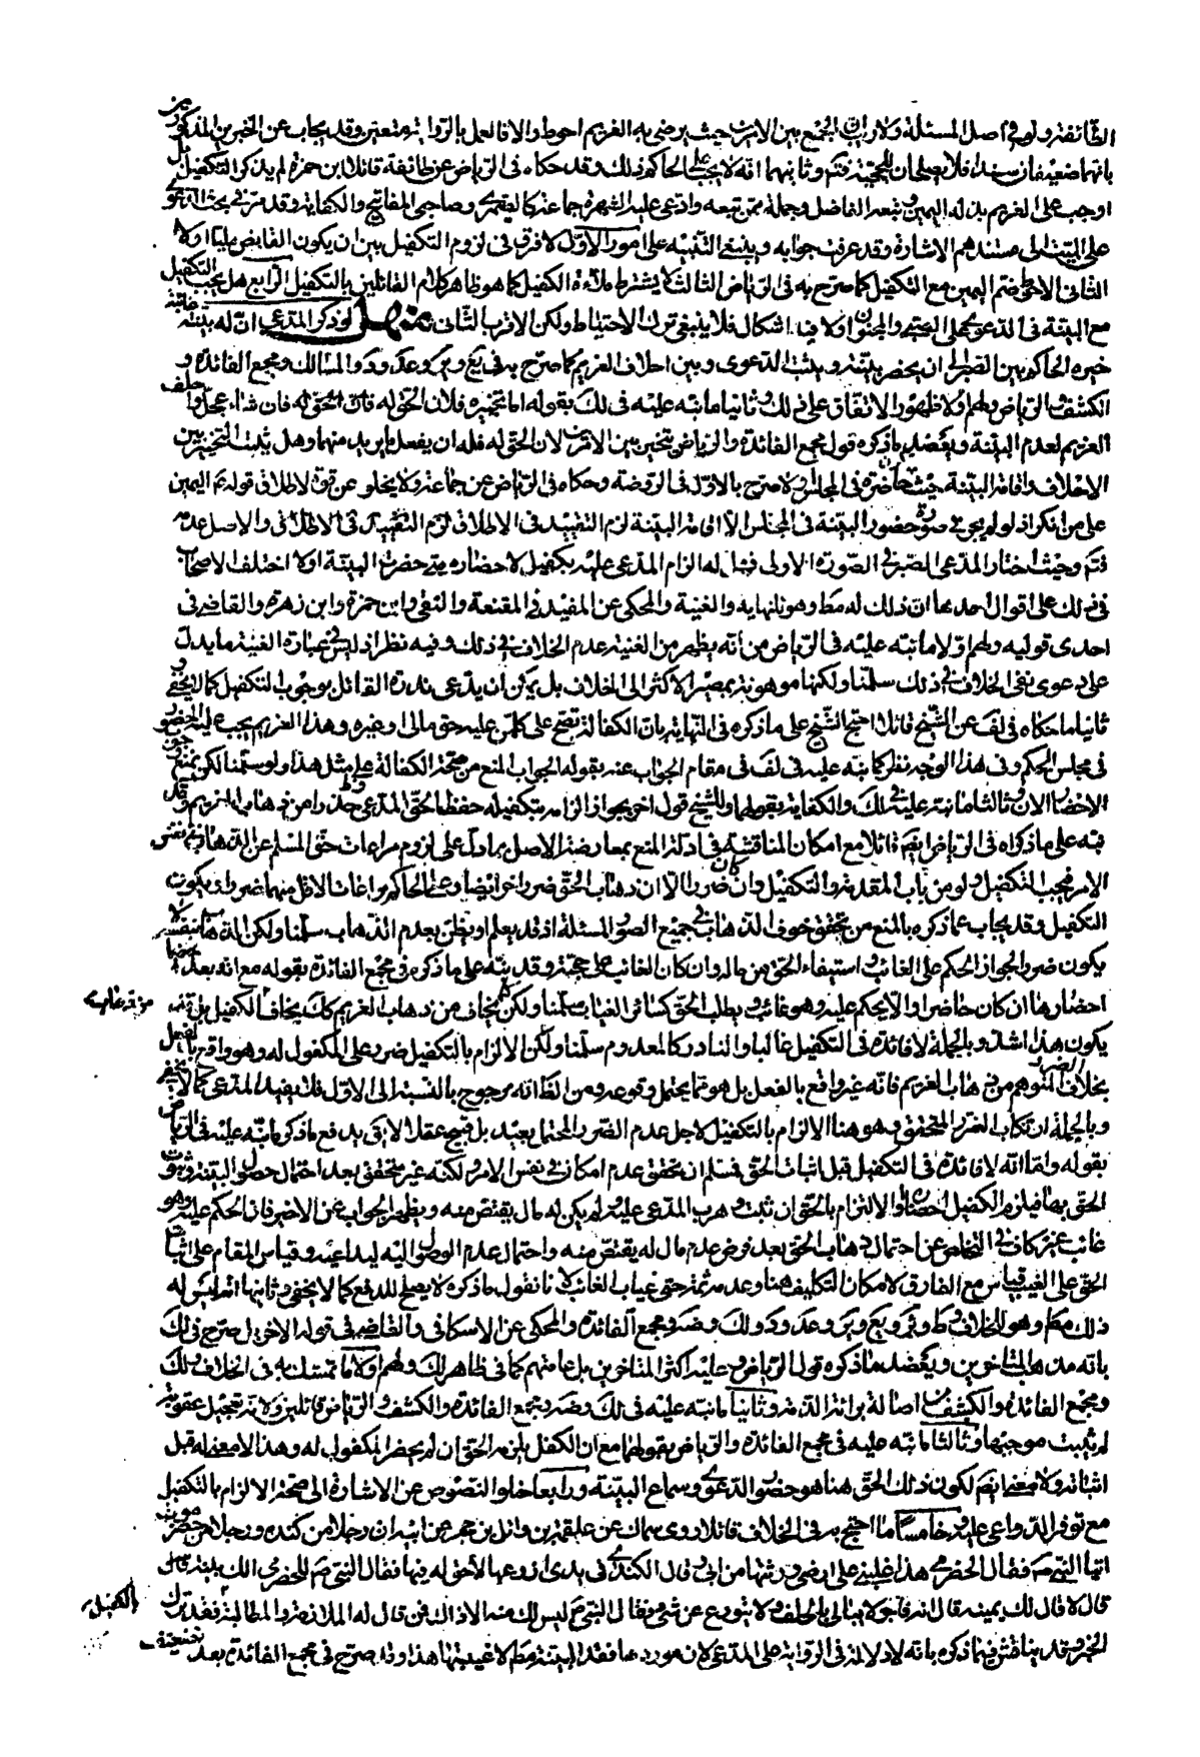 الطائفة ولو في اصل المسئلة ولا ريب ان الجمع بين الامرين حيث يرضى به الغريم احوط والا فالعمل بالرواية متعين وقد يجاب عن الخبرين المذكورين
بانهما ضعيفان سندا فلا يصلحان للحجية فتم وثانيهما انه لا يجب على الحاكم ذلك وقد حكاه في الرياض عن طائفة قائلا ابن حمزة لم يذكر التكفيل بل
اوجب على الغريم بذله اليمين وتبعه الفاضل وجملة ممن تبعه وادعى عليه الشهرة جماعة كالصيمري وصاحبي المفاتيح والكفاية وقد مر في بحث الدعوى
على الميت الى مستندهم الاشارة وقد عرفت جوابه وينبغي التنبيه على امور الاول لا فرق في لزوم التكفيل بين ان يكون القابض مليا او لا
الثاني الاحوط ضم اليمين مع التكفيل كما صرح به في الرياض الثالث لا يشترط ملاءة الكفيل كما هو ظاهر كلام القائلين بالتكفيل الرابع هل يجب التكفيل
مع البينة في الدعوى على الصبي والمجنون او لا فيه اشكال فلا ينبغي ترك الاحتياط ولكن الاقرب الثاني منهل لو ذكر المدعي ان له بينة غائبة
خيره الحاكم بين الصبر الى ان يحضر بينته ويثبت الدعوى وبين احلاف الغريم كما صرح به في يع وير وعد ود والمسالك ومجمع الفائدة و
الكشف والرياض ولهم اولا ظهور الاتفاق على ذلك وثانيا ما نبه عليه في لك بقوله اما تخييره فلان الحق له فان الحق له فان شاء عجل واحلف
الغريم لعدم البينة ويعضد ما ذكره قول مجمع الفائدة والرياض تخير بين الامرين لان الحق له فله ان يفعل ما يريد منهما وهل يثبت التخيير بين
الاحلاف واقامة البينة حيث حاضرة في المجلس او لا صرح بالاول في الروضة وحكاه في الرياض عن جماعة ولا يخلو عن قوة لاطلاق قولهم اليمين
على من انكر اذ لو لم يجز في صورة حضور البينة في المجلس الا اقامة البينة لزم التقييد في الاطلاق لزم التقييد في الاطلاق والاصل عدمه
فتم وحيث اختار المدعي الصبر في الصورة الاولى فهل له الزام المدعى عليه بكفيل لاحضاره متى حضرت البينة او لا اختلف الاصحاب
في ذلك على اقوال احدها ان ذلك له مط وهو للنهاية والغنية والمحكي عن المفيد في المقنعة والتقي وابن حمزة وابن زهرة والقاضي في
احدى قوليه ولهم اولا ما نبه عليه في الرياض من انه يظهر من الغنية عدم الخلاف في ذلك وفيه نظر اذ ليس في عبارة الغنية ما يدل
على دعوى نفي الخلاف في ذلك سلمنا ولكنها موهونة بمصير الاكثر الى الخلاف بل يمكن ان يدعى ندرة القائل بوجوب التكفيل كما لا يخفى و
ثانيا ما حكاه في لف عن الشيخ قائلا احتج الشيخ على ما ذكره في النهاية بان الكفالة تصح على كل من عليه حق مالي او غيره وهذا الغريم يجب عليه الحضور
في مجلس الحكم وفي هذا الوجه نظر كما نبه عليه في لف في مقام الجواب عنه بقوله الجواب المنع من صحة الكفالة على مثل هذا ولو سلمنا لكن نمنع
الاختصاص الان وثالثا ما نبه عليه في لك والكفاية بقولهما وللشيخ قول اخر بجواز الزامه بتكفيله حفظا لحق المدعي حذرا من ذهاب الغريم وقد
نبه على ما ذكراه في الرياض ايضا قائلا مع امكان المناقشة في ادلة المنع بمعارضة الاصل بما دل على لزوم مراعات حق المسلم عن الذهاب
الامر فيجب التكفيل ولو من باب المقدمة والتكفيل وان كان ضررا الا ان ذهاب الحق ضرر اخر ايضا وعلى الحاكم مراعات الاقل منهما ضررا وقد يكون
التكفيل وقد يجاب عما ذكره بالمنع من تحقق خوف الذهاب في جميع الصور المسئلة اذ قد يعلم او يظن بعدم الذهاب سلمنا ولكن الذهاب بنفسه لا
يكون ضررا لجواز الحكم على الغائب واستيفاء الحق من ماله وان كان الغائب على حجته وقد ينبه على ما ذكره في مجمع الفائدة بقوله مع انه بعد
احضارها ان كان حاضرا والا يحكم عليه وهو غائب ويطلب الحق كسائر الغياب سلمنا ولكن كما يخاف من ذهاب الغريم كك يخاف الكفيل بل قد
يكون هذا اشد وبالجملة لا فائدة في التكفيل غالبا والنادر كالمعدوم سلمنا ولكن الالزام بالتكفيل ضرر على المكفول له وهو واقع بالفعل
بخلاف الضرر المتوهم من ذهاب الغريم فانه غير واقع بالفعل بل هو مما يحتمل وقوعه ومن الظ انه مرجوح بالنسبة الى الاول فلا يفيد المدعى كما لا يخفى
وبالجملة ارتكاب الضرر المتحقق وهو هنا الالزام بالتكفيل لاجل عدم الضرر المحتمل بعيد بل قبيح عقلا لا يدفع ما ذكر ما نبه عليه في الرياض
بقوله واما انه لا فائدة في التكفيل قبل اثبات الحق فمسلم ان تحقق عدم امكانه في نفس الامر ولكنه غير متحقق بعد احتمال حصول البينة وثبوت
الحق بها فيلزم الكفيل احضاره او الالتزام بالحق ان ثبت وهرب المدعى عليه ولم يكن له مال يقتض منه ويظهر الجواب عن الاخير فان الحكم عليه وهو
غائب غير كاف في التخلص عن احتمال ذهاب الحق بعد فرض عدم مال له يقتص منه واحتمال عدم الوصول اليه لبداعته وقياس المقام على اثبات
الحق على الغيب قياس مع الفارق لامكان التكليف هنا وعدمه ثمة حتى غياب الغائب لانا نقول ما ذكره لا يصلح للدفع كما لا يخفى وثانيها انه ليس له
ذلك مط وهو للخلاف وط وئر ويع وير وعد ود ولك وضه ومجمع الفائدة والمحكي عن الاسكافي والقاضي في قوله الاخر بل صرح في لك
بانه مذهب المتاخرين ويعضد ما ذكره قول الرياض وعليه اكثر المتاخرين بل عامتهم كما في ظاهر لك ولهم اولا ما تمسك به في الخلاف ولك
ومجمع الفائدة والكشف من اصالة برائة الذمة وثانيا ما نبه عليه في لك وضه ومجمع الفائدة والكشف والرياض قائلين ولانه تعجيل عقوبة
لم يثبت موجبها وثالثا ما نبه عليه في مجمع الفائدة والرياض بقولهما مع ان الكفل يلزمه الحق ان لم يحضر المكفول له وهذا لا معنى له قبل
اثباته ولا معنى ايضا لكون ذلك الحق هنا هو حضور الدعوى وسماع البينة ورابعا خلو النصوص عن الاشارة الى صحة الالزام بالتكفيل
مع توفر الدواعي عليه وخامسا ما احتج به في الخلاف قائلا روى سماك عن علقمة بن وائل بن حجر عن ابيه ان رجلا من كندة ورجلا من حضرموت
اتيا النبي ص فقال الحضرمي هذا غلبني على ارضي ورثتها من ابي وقال الكندي في يدي ازرعها لا حق له فيها فقال النبي ص للحضرمي الك بينة قال
قال لا قال لك يمينه قال انه فاجر لا يبالي بالحلف ولا يتورع عن شئ فقال النبي ص ليس لك منه الا ذاك فمن قال له الملازمة والمطالبة بالكفيل فقد ترك
الخبر وقد يناقش فيما ذكره بانه لا دلالة في الرواية على المدعى لان موردها فقد البينة مط لا غيبتها هذا وقد صرح في مجمع الفائدة بعد